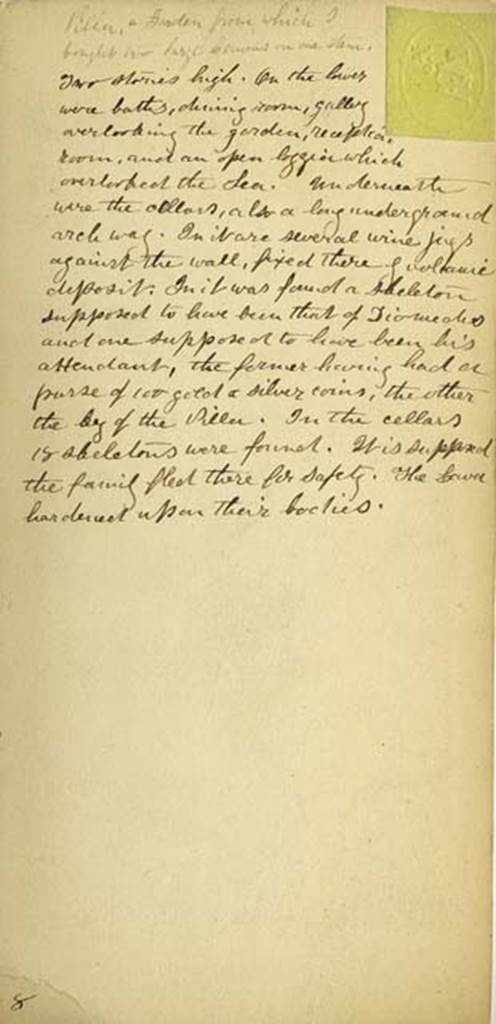 Villa, a Garden from which I
bought two large lemons on one stem.
Two stories high. On the lower
were baths, dining room, gallery
overlooking the garden, reception
room, and an open loggia which
overlooked the Sea. Underneath
were the cellars, also a long underground
arch way. In it are several wine jugs
against the wall, fixed there by volcanic
deposit. In it was found a skeleton
supposed to have been that of Diomedes
and one supposed to have been his
attendant, the former having had a
purse of 100 gold & silver coins, the other
the key of the Villa. In the cellars
18 skeletons were found. It is supposed
the family fled there for safety. The lava
hardened upon their bodies.
8